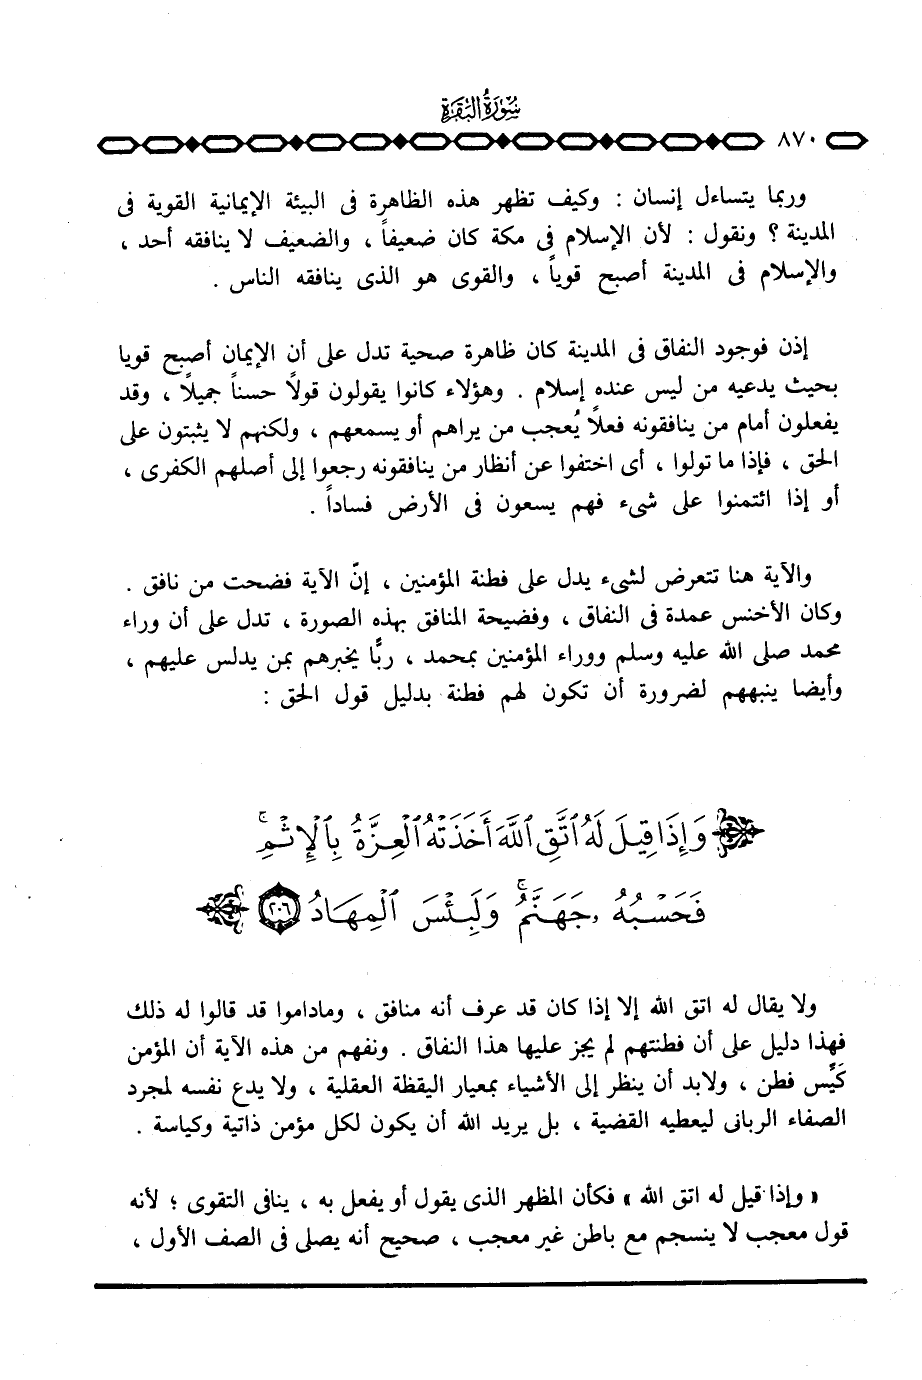 سُورَةُ البَقَرَةِ
٨٧٠
وربما يتساءل إنسان : وكيف تظهر هذه الظاهرة فى البيئة الإيمانية القوية فى
المدينة ؟ ونقول : لأن الإسلام فى مكة كان ضعيفاً ، والضعيف لا ينافقه أحد ،
والإسلام فى المدينة أصبح قوياً ، والقوى هو الذى ينافقه الناس .
إذن فوجود النفاق فى المدينة كان ظاهرة صحية تدل على أن الإيمان أصبح قويا
بحيث يدعيه من ليس عنده إسلام . وهؤلاء كانوا يقولون قولاً حسناً جميلاً ، وقد
يفعلون أمام من ينافقونه فعلاً يُعجب من يراهم أو يسمعهم ، ولكنهم لا يثبتون على
الحق ، فإذا ما تولوا ، أى اختفوا عن أنظار من ينافقونه رجعوا إلى أصلهم الكفرى ،
أو إذا ائتمنوا على شىء فهم يسعون فى الأرض فساداً .
والآية هنا تتعرض لشىء يدل على فطنة المؤمنين ، إنّ الآية فضحت من نافق .
وكان الأخنس عمدة فى النفاق ، وفضيحة المنافق بهذه الصورة ، تدل على أن وراء
محمد صلى الله عليه وسلم ووراء المؤمنين بمحمد ، ربًّا يخبرهم بمن يدلس عليهم ،
وأيضا ينبههم لضرورة أن تكون لهم فطنة بدليل قول الحق :
وَإِذَا قِيلَ لَهُ ٱتَّقِ ٱللَّهَ أَخَذَتْهُ ٱلْعِزَّةُ بِٱلْإِثْمِ ۚ
فَحَسْبُهُۥ جَهَنَّمُ ۚ وَلَبِئْسَ ٱلْمِهَادُ ٢٠٦
ولا يقال له اتق الله إلا إذا كان قد عرف أنه منافق ، وماداموا قد قالوا له ذلك
فهذا دليل على أن فطنتهم لم يجز عليها هذا النفاق . ونفهم من هذه الآية أن المؤمن
كَيِّس فطن ، ولابد أن ينظر إلى الأشياء بمعيار اليقظة العقلية ، ولا يدع نفسه لمجرد
الصفاء الربانى ليعطيه القضية ، بل يريد الله أن يكون لكل مؤمن ذاتية وكياسة .
« وإذا قيل له اتق الله » فكأن المظهر الذى يقول أو يفعل به ، ينافى التقوى ؛ لأنه
قول معجب لا ينسجم مع باطن غير معجب ، صحيح أنه يصلى فى الصف الأول ،